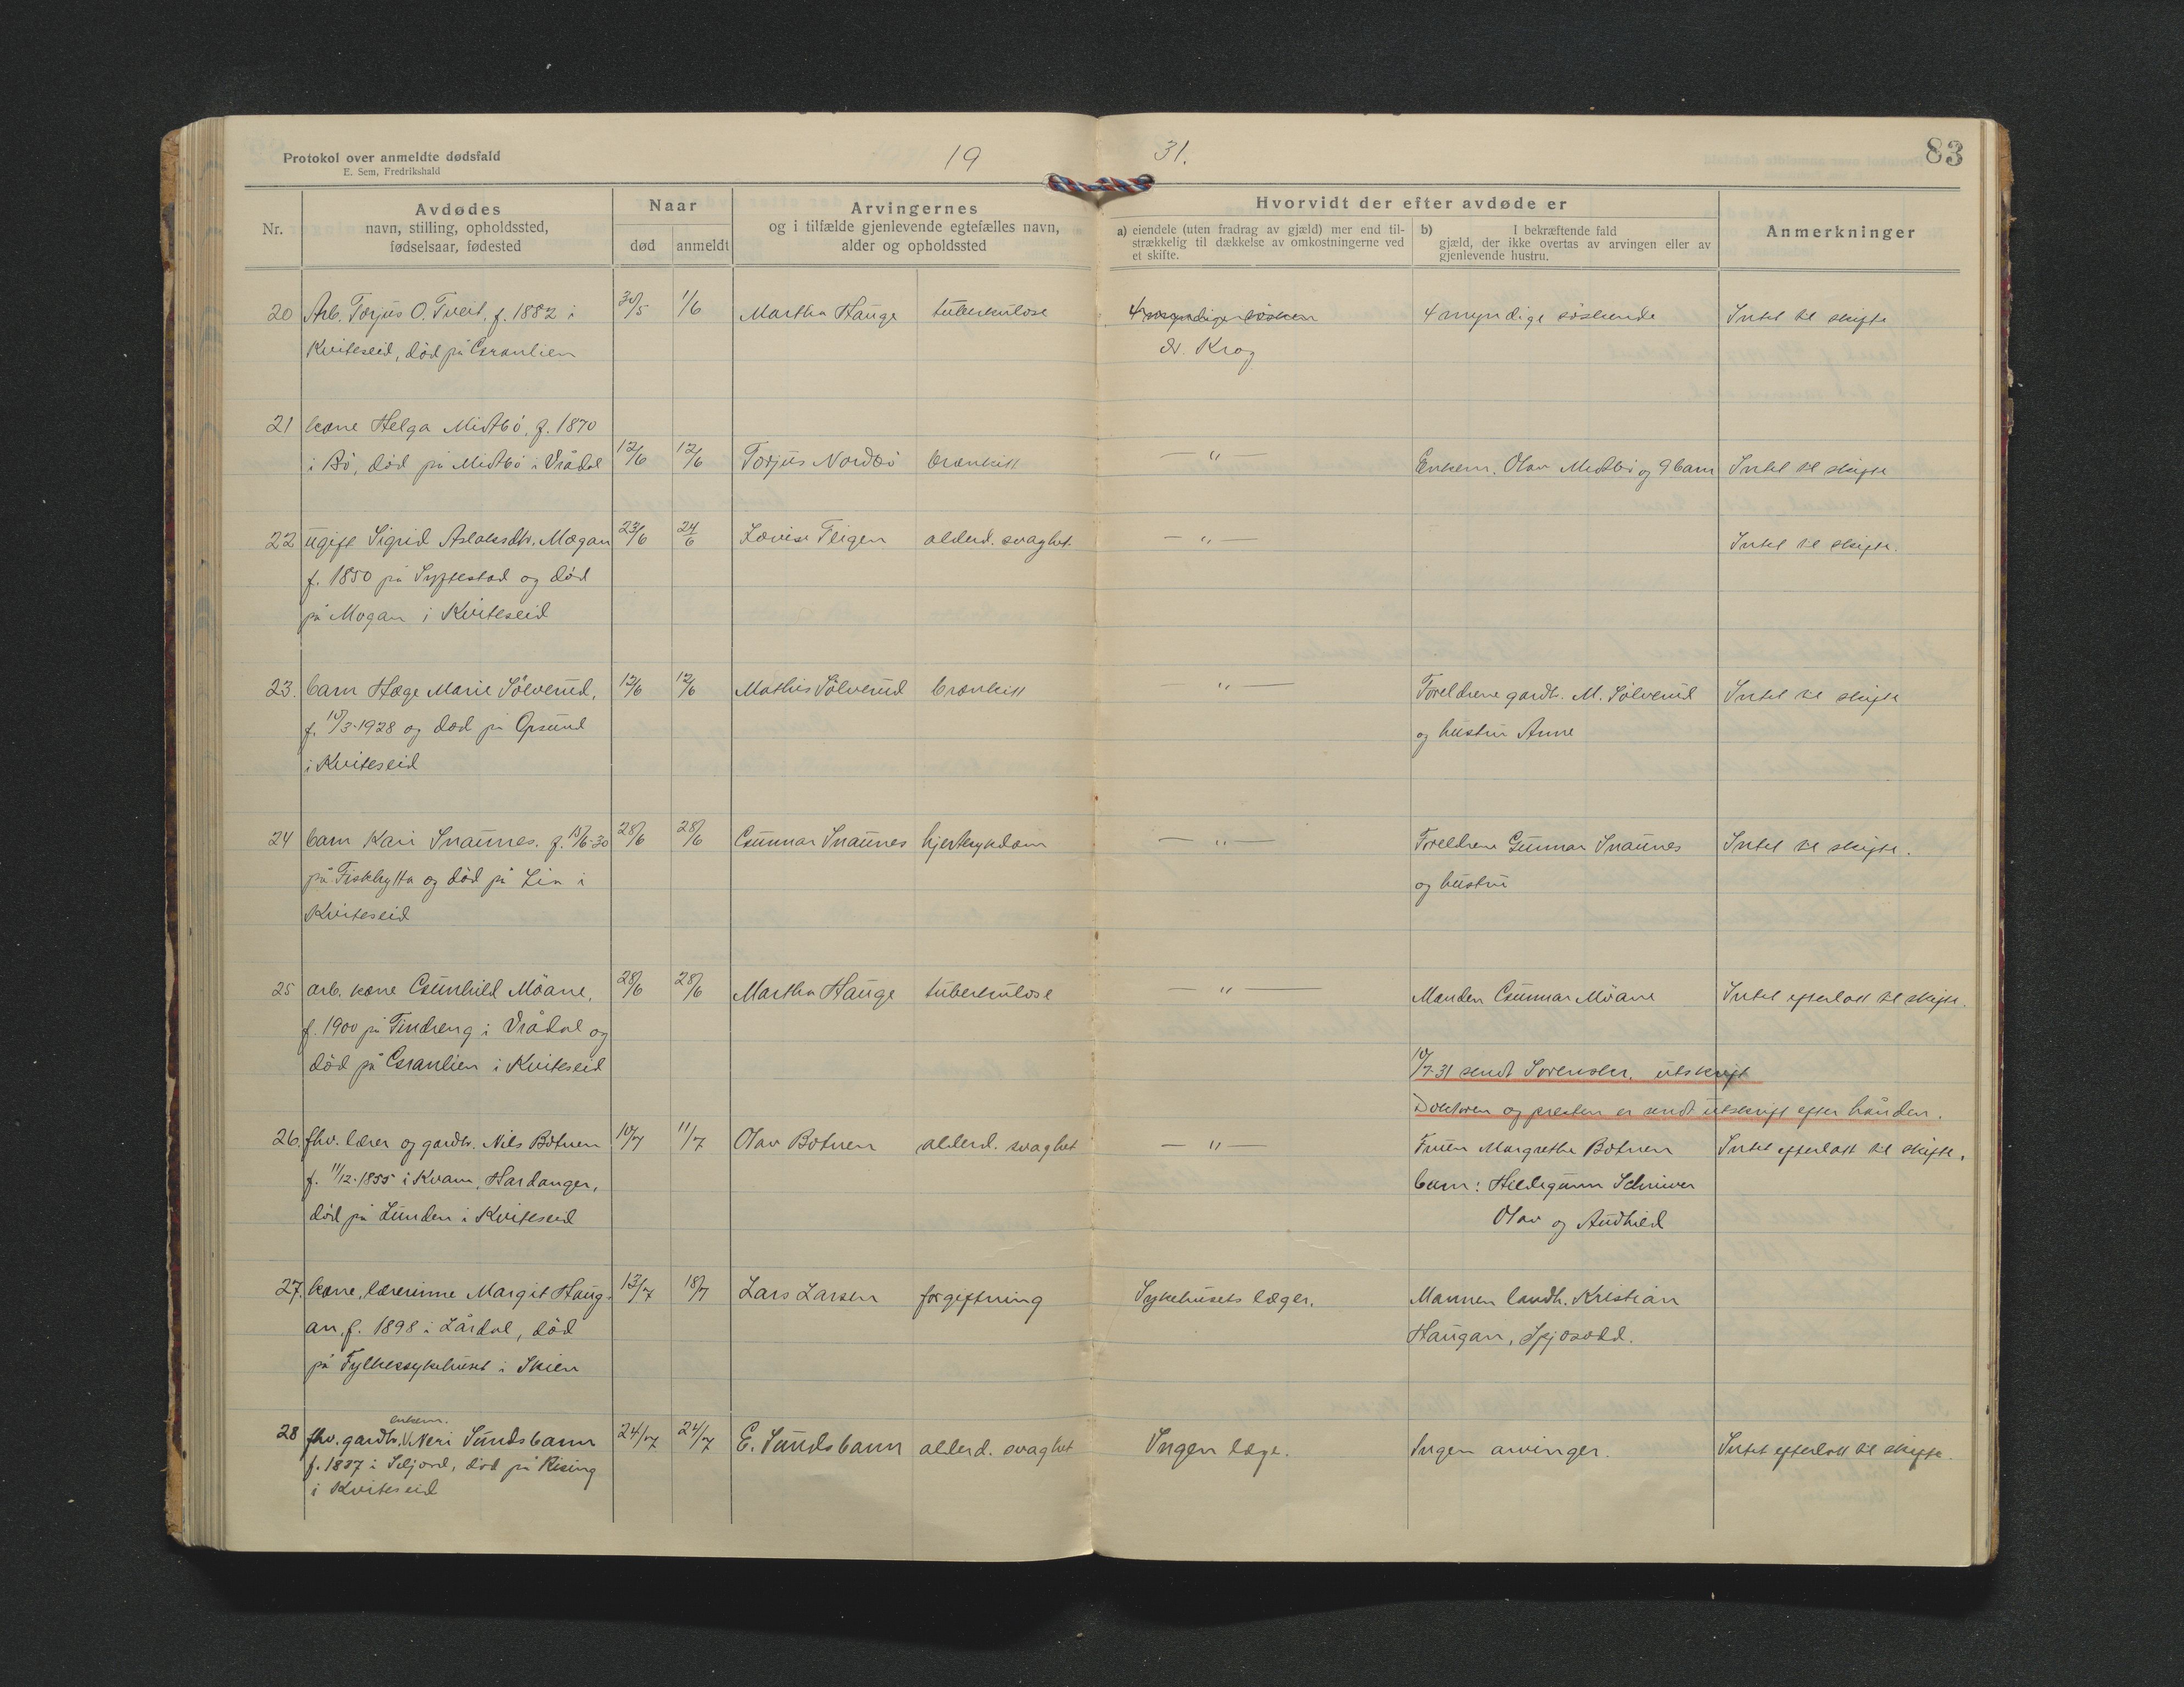 Protokol over anmeldte dødsfald
E. Sem, Fredrikshald
19 31.
83
Nr.
Avdødes
navn, stilling, opholdssted,
fødselsaar, fødested
Naar
død
anmeldt
Arvingernes
og i tilfælde gjenlevende egtefælles navn,
alder og opholdssted
Hvorvidt der efter avdøde er
a) eiendele (uten fradrag av gjæld) mer end til-
strækkelig til dækkelse av omkostningerne ved
et skifte.
b) I bekræftende fald
gjæld, der ikke overtas av arvingen eller av
gjenlevende hustru.
Anmerkninger
20 Arb. Torjus O. Tveit, f. 1882 i 30/5 1/6 Martha Hauge tuberkulose 4 myndige søsken 4 myndige søskende Intet til skifte
Kviteseid, død på Granlien dr. Krog
21 kone Helga Midtbö, f. 1870
i Bö, död på Midtbö i Vrådal 12/6 12/6 Torjus Nordbö bronkitt — " — Enkem. Olav Midtbö og 9 barn Intet til skifte
22 ugift Sigrid Aslaksdtr. Mogan 23/6 24/6 Lovise Fleigen alderd. svaghet. — " — Intet til skifte.
f. 1850 på Syftestad og död
på Mogan i Kviteseid
23. barn Hæge Marie Sölverud, 12/6 12/6 Mathis Sölverud bronkitt — " — Foreldrene gardb. M. Sölverud Intet til skifte
f. 10/3-1928 og död på Opsund og hustru Anne
i Kviteseid
24 barn Kari Snaunes. f. 15/6-30 28/6 28/6 Gunnar Snaunes hjertesykdom — " — Foreldrene Gunnar Snaunes Intet til skifte.
på Fiskhytta og död på Lia i og hustru
Kviteseid
25 arb. kone Gunhild Möane, 28/6 28/6 Martha Hauge tuberkulose — " — Manden Gunnar Möane Intet efterlatt til skifte.
f. 1900 på Tindreng i Vrådal og
död på Granlien i Kviteseid 10/7-31 sendt Sorenskr. utskrift
Doktoren og presten er sendt utskrift efter hånden.
26. fhv. lærer og gardb. Nils Botnen 10/7 11/7 Olav Botnen alderd. svaghet — " — Fruen Margrethe Botnen Intet efterlatt til skifte.
f. 11/12-1855 i Kvam, Hardanger, barn: Hildegunn Schriwer
död på Lunden i Kviteseid Olav og Audhild
27. kone, lærerinne Margit Haug- 13/7 18/7 Lars Larsen forgiftning Sykehusets læger. Mannen landh. Kristian
an, f. 1898 i Lårdal, död Haugan, Spjosodd.
på Fylkessykehuset i Skien
enkem.
28 fhv. gardb. Neri Sundsbarm 24/7 24/7 E. Sundsbarm alderd. svaghet Ingen læge. Ingen arvinger. Intet efterlatt til skifte.
f. 1837 i Seljord, död på Rising
i Kviteseid